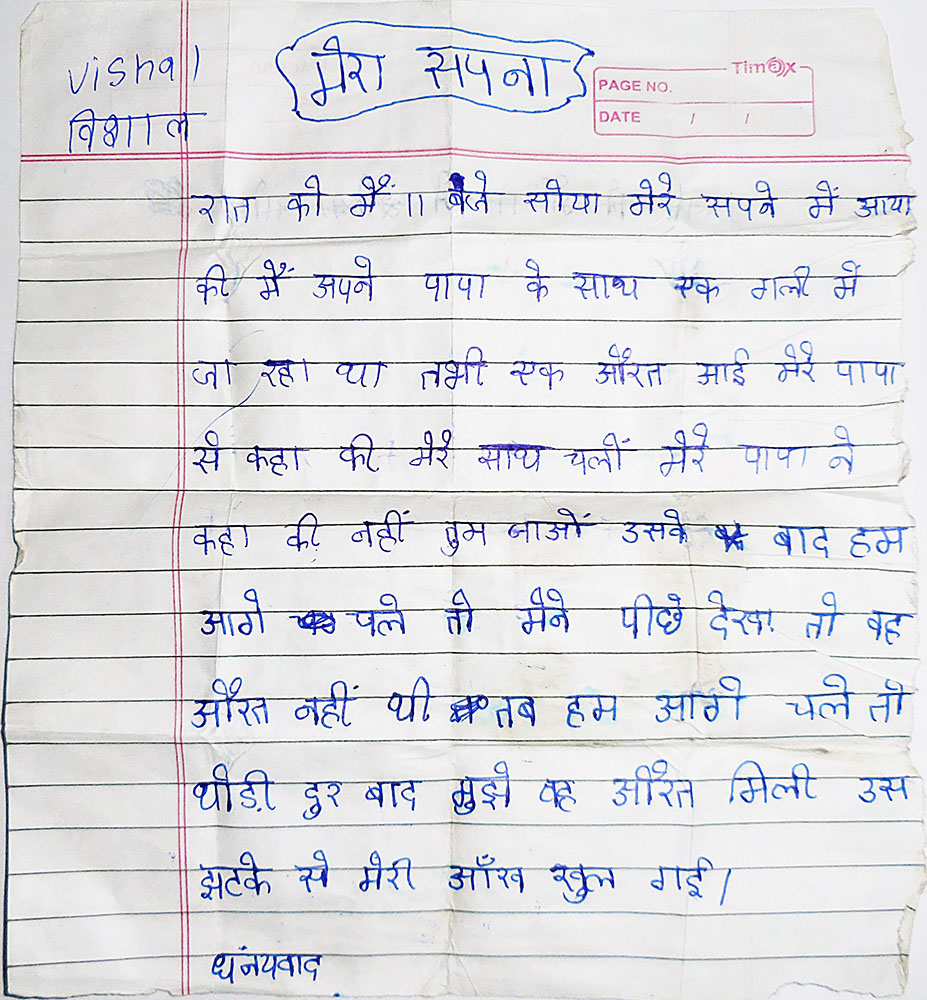 vishal
विशाल
मेरा सपना
Timex
PAGE NO.
DATE / /
रात को मैं 11 बजे सोया मेरे सपने में आया
की मैं अपने पापा के साथ एक गली में
जा रहा था तभी एक औरत आई मेरे पापा
से कहा की मेरे साथ चलों मेरे पापा ने
कहा की नहीं तुम जाओं उसके बाद हम
आगे चले तो मैने पीछे देखा तो वह
औरत नहीं थी तब हम आगे चले तो
थोडी़ दुर बाद मुझे वह औरत मिली उस
झटके से मेरी आँख खुल गई।
धंनयवाद